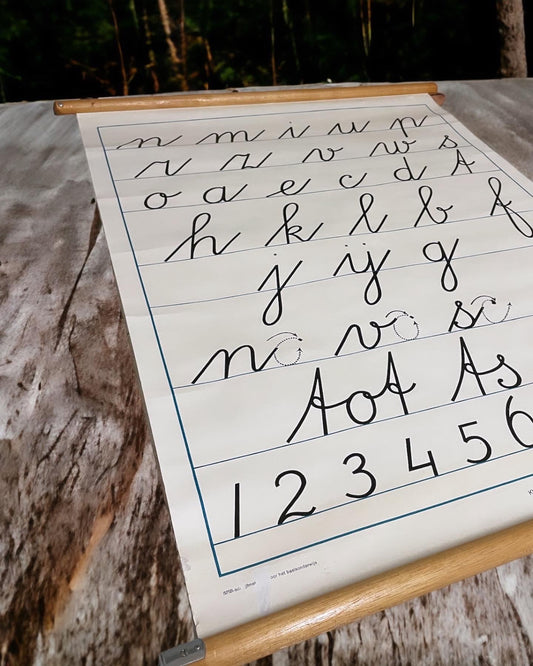 n m i u p
r z v w s
o a e c d t
h k l b f
j ij g
n v s
tot ts
1 2 3 4 5 6
voor het basisonderwijs